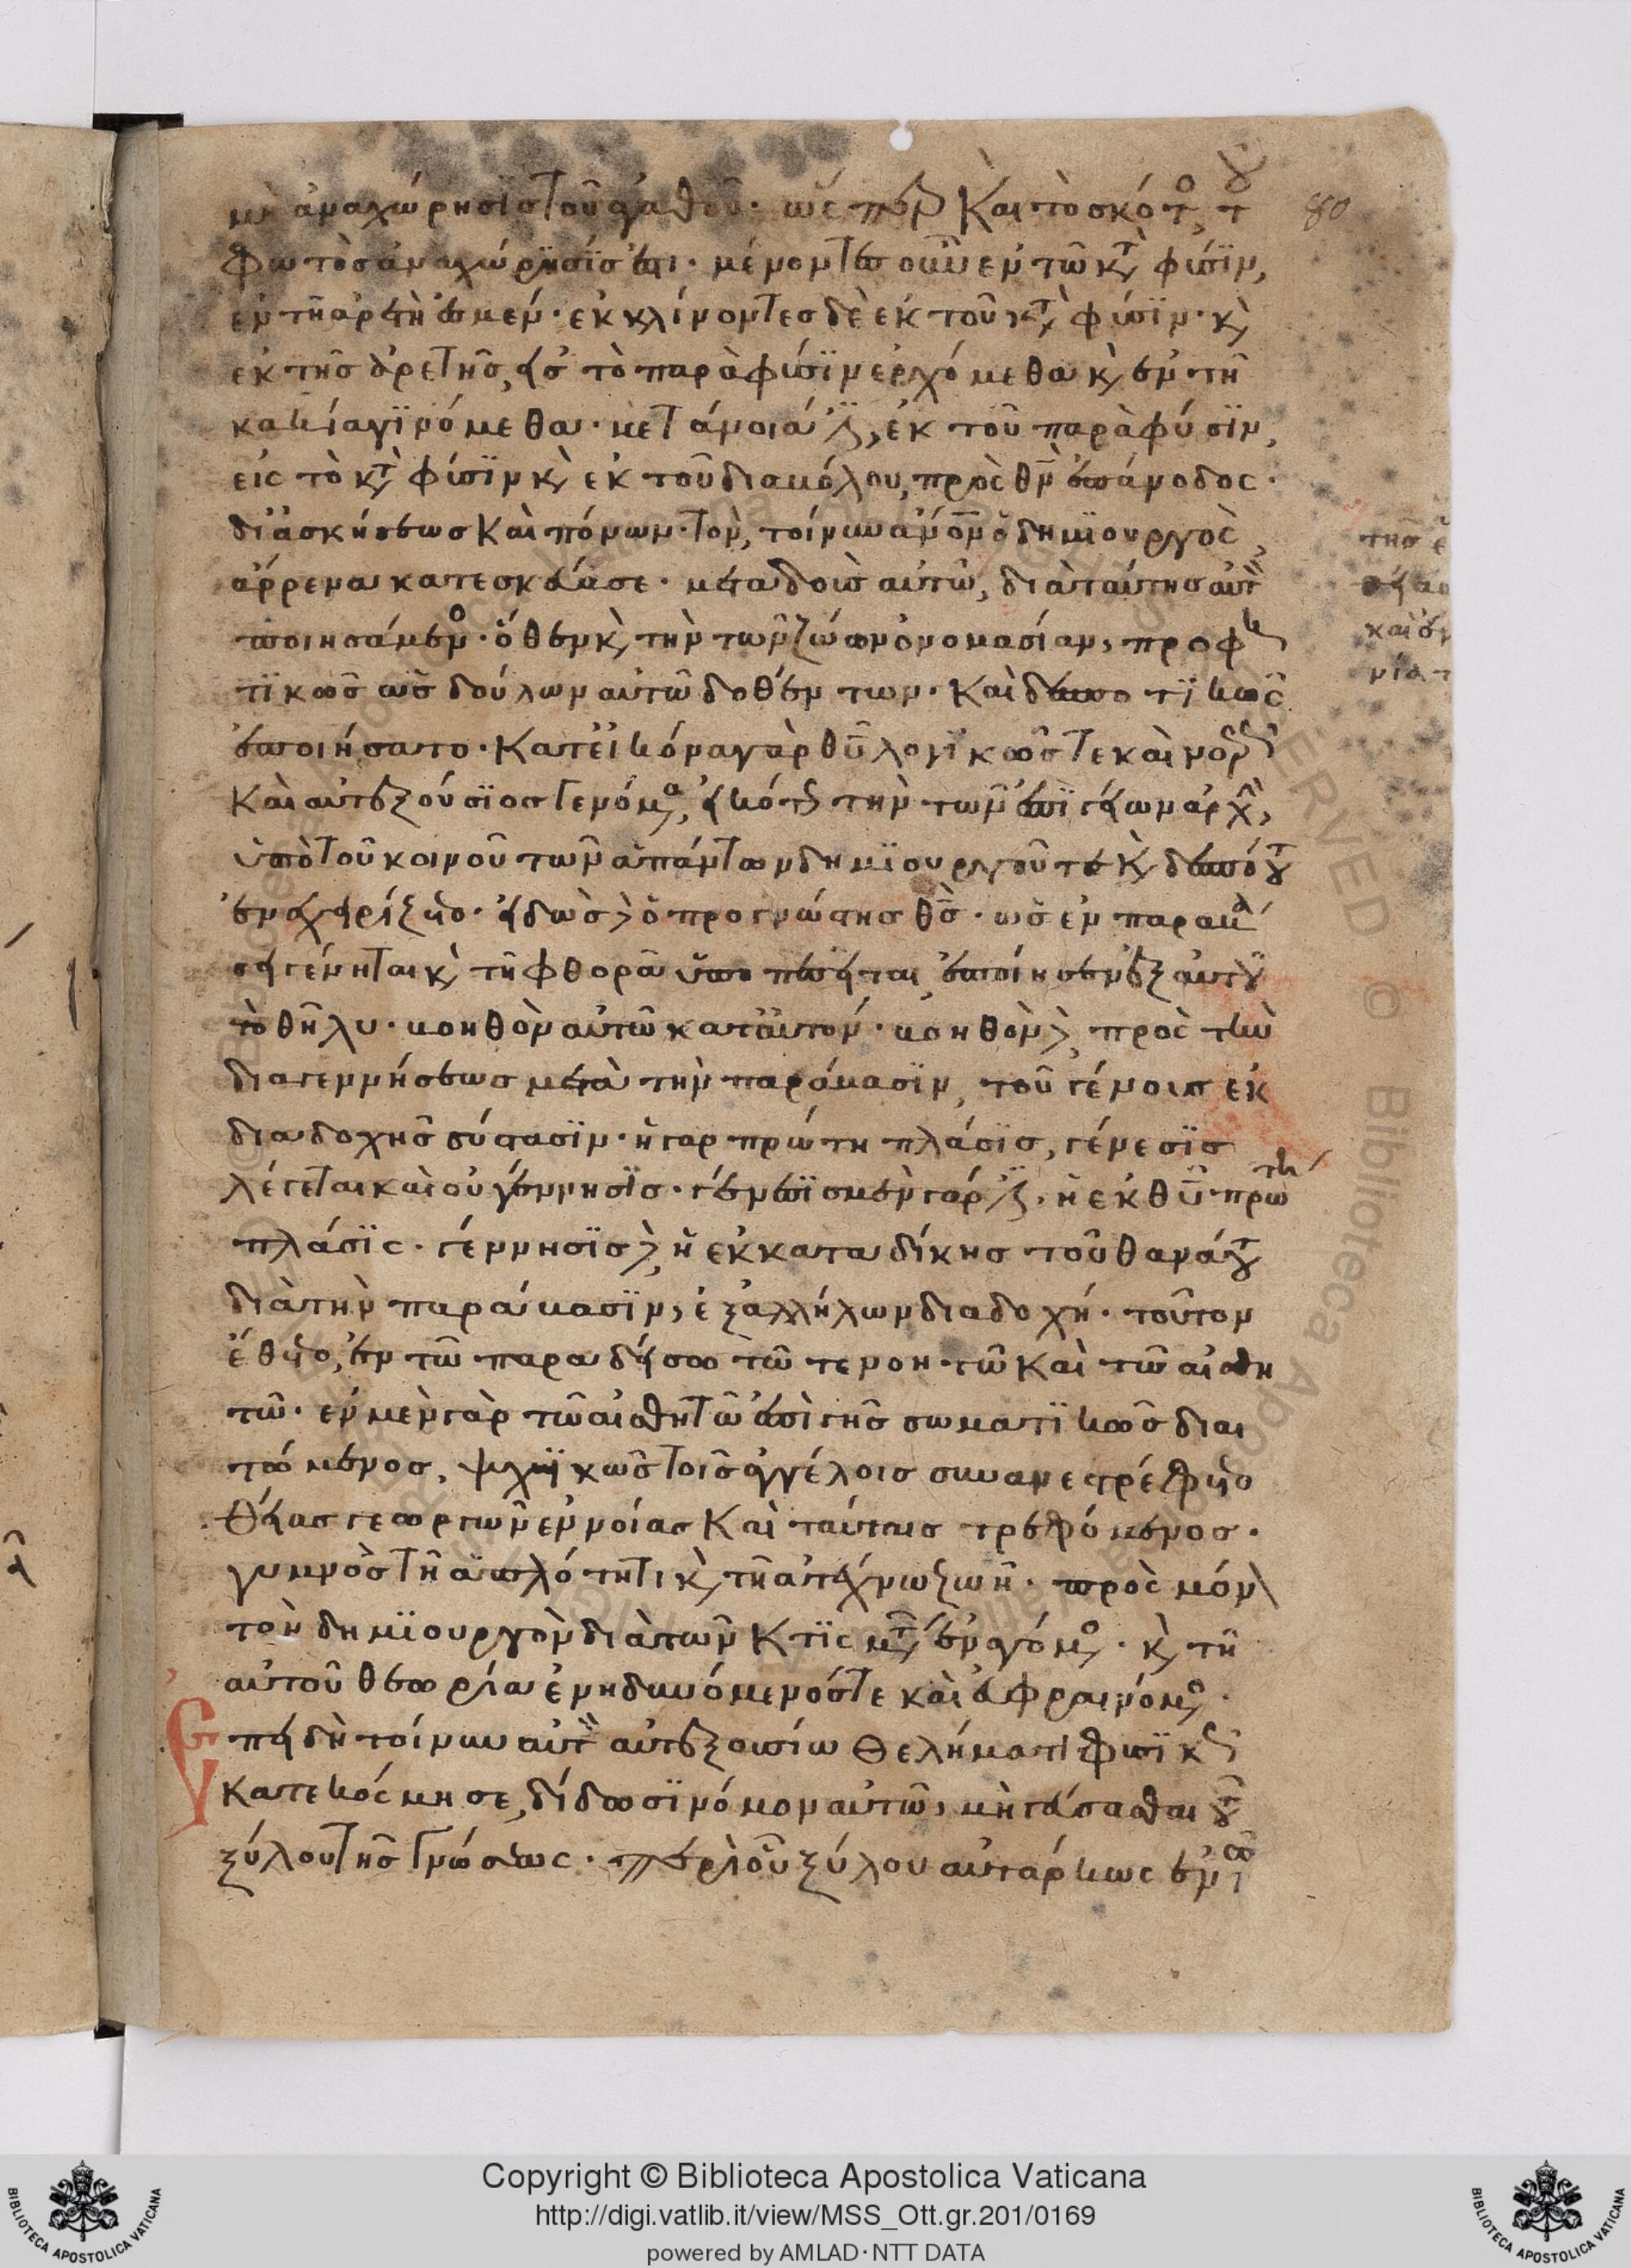 μὴ ἀναχώρησϊς τοῦ ἀγαθοῦ· ὥσπερ Καὶ τὸ σκότος τοῦ
80
φωτὸς ἀναχώρησϊς ἐστι· μένοντες οὖν ἐν τῶ κτ φύσϊν,
ἐν τῆ ἀρετῆ ἐσμέν· ἐκκλίνοντες δὲ ἐκ τοῦ κτ φύσϊν· κὲ
ἐκ τῆς ἀρετῆς, εἰς τὸ παρὰ φύσϊν ἐρχόμεθα κὲ ἐν τῆ
κακία γϊνόμεθα· μετάνοιά ἐστϊν, ἐκ τοῦ παρὰ φύσϊν,
εἰς τὸ κτ φύσϊν κὲ ἐκ τοῦ διαβόλου, πρὸς θν ἐπάνοδος·
δι ἀσκήσεως Καὶ πόνων· τὸν, τοίνυν ἀνον ὁ δημϊουργὸς
ἄρρενα κατεσκεύασε· μεταδοὺς αὐτῶ, διὰ ταύτης αὐτὸν
ποιησάμενος· ὅθεν κὲ τὴν τῶν ζώων ὀνομασίαν, προφη
τϊκῶς ὡς δούλων αὐτῶ δοθέντων· Καὶ δεσποτϊκῶς
ἐποιήσατο· Κατ εἰκόνα γὰρ θῦ λογϊκῶς τε καὶ νοερῶς
Καὶ αὐτεξούσϊος γενόμενος, εἰκότως τὴν τῶν ἐπϊγείων ἀρχὴν,
ὑπὸ τοῦ κοινοῦ τῶν ἁπάντων δημϊουργοῦ τε κὲ δεσπότου
ἐνεχειρίζετο· εἰδὼς δὲ ὁ προγνώστης θς· ὡς ἐν παραβά
σει γένηται κὲ τῆ φθορᾶ ὑποπεσεῖται, ἐποίησεν ἐξ αὐτοῦ
τὸ θῆλυ· βοηθὸν αὐτῶ κατ αὐτόν· βοηθὸν δὲ πρὸς τὴν
διαγεννήσεως μετὰ τὴν παράβασϊν, τοῦ γένους ἐκ
διαδοχῆς σύστασϊν· ἡ γὰρ πρώτη πλάσϊς, γένεσϊς
λέγεται καὶ οὐ γέννησϊς· γένεσϊς μὲν γάρ ἐστϊν, ἡ ἐκ θῦ πρώτη
πλάσϊς· γέννησϊς δὲ, ἡ ἐκ καταδίκης τοῦ θανάτου
διὰ τὴν παράβασϊν, ἐξ ἀλλήλων διαδοχή· τοῦτον
ἔθετο, ἐν τῶ παραδείσω τῶ τε νοητῶ Καὶ τῶ αἰσθη
τῶ· ἐν μὲν γὰρ τῶ αἰσθητῶ ἐπὶ γῆς σωματϊκῶς διαι
τώμενος, ψυχϊκῶς τοῖς ἀγγέλοις συνανεστρέφετο
θείας γεωργῶν ἐννοίας Καὶ ταύταις τρεφόμενος·
γυμνὸς τῆ ἁπλότητι κὲ τῆ ἀτέχνω ζωῆ· πρὸς μόνον
τὸν δημϊουργὸν διὰ τῶν κτϊσμάτων ἐναγόμενος· κὲ τῆ
αὐτοῦ θεωρία ἐνηδυνόμενός τε καὶ εὐφραινόμενος·
Ἐπειδὴ τοίνυν αὐτὸν αὐτεξουσίω θελήματι φυσϊκῶς
κατεκόσμησε, δίδωσϊ νόμον αὐτῶ, μὴ γεύσασθαι τοῦ
ξύλου τῆς γνώσεως· περὶ οὗ ξύλου αὐτάρκως ἐν τῶ
Copyright © Biblioteca Apostolica Vaticana
http://digi.vatlib.it/view/MSS_Ott.gr.201/0169
powered by AMLAD·NTT DATA